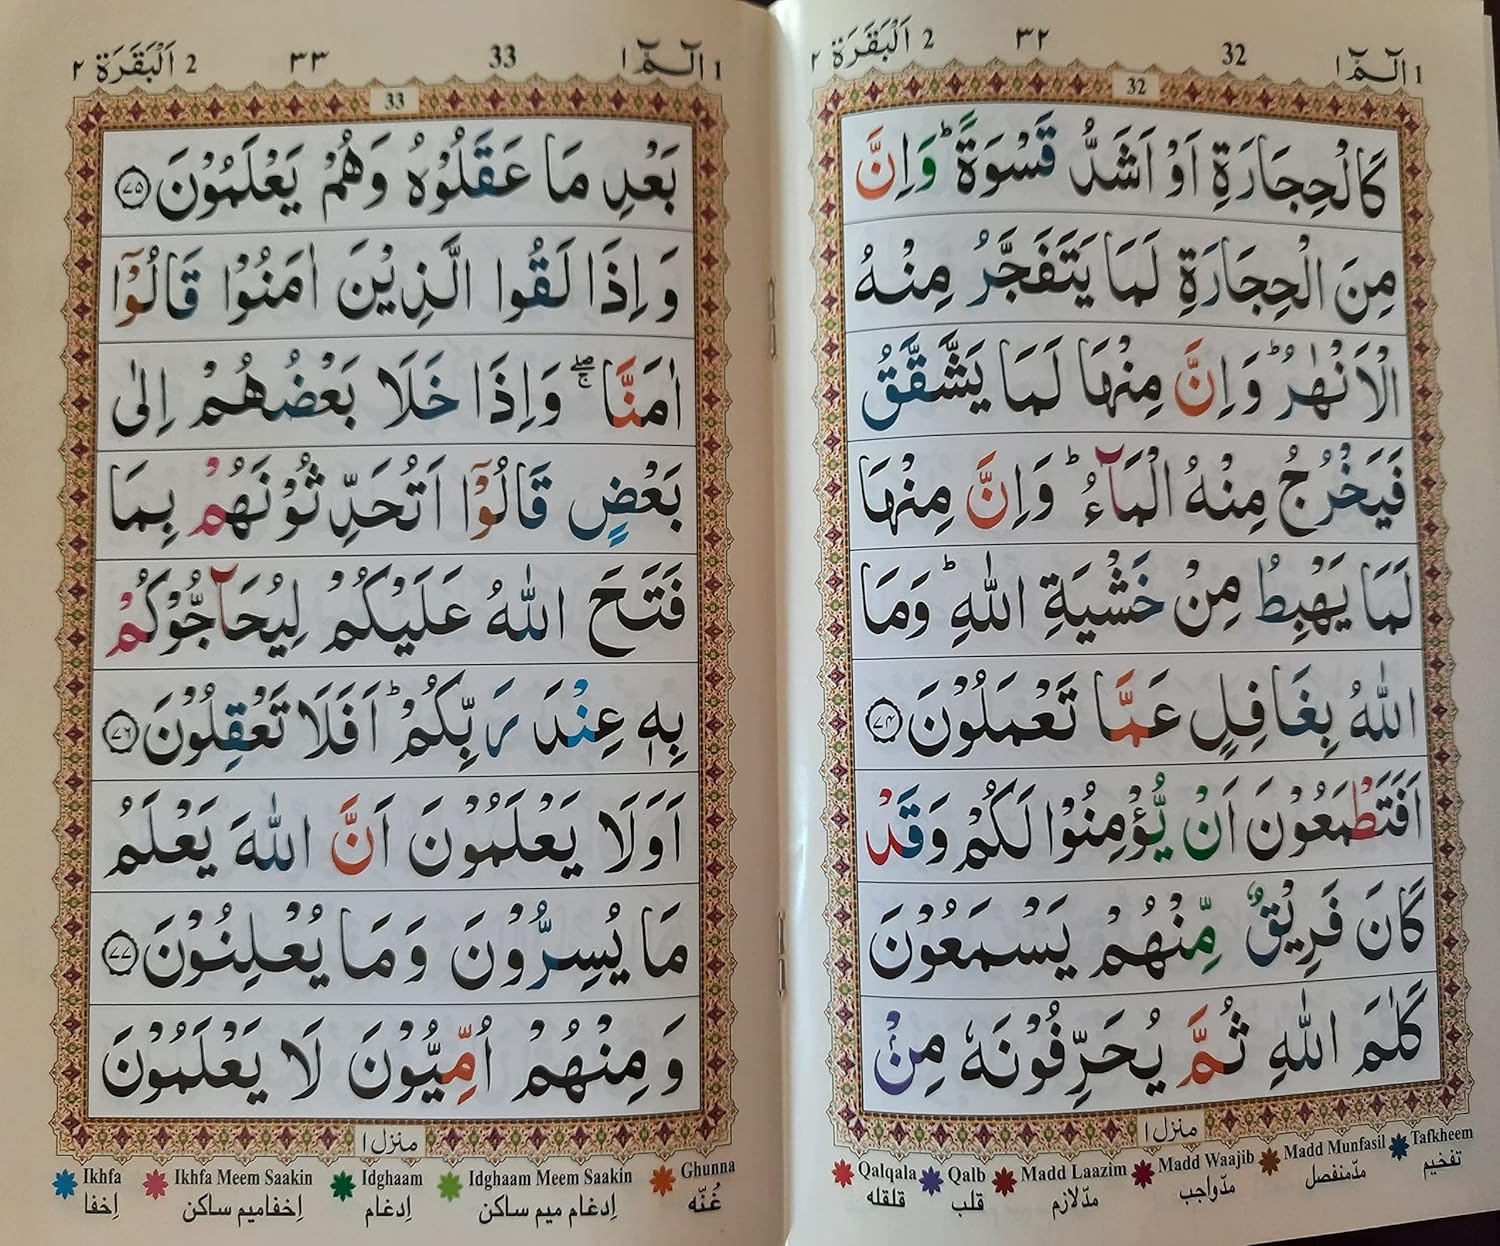 1 الٓمّٓ ١
32
٣٢
2 اَلْبَقَرَة ٢
32
كَالْحِجَارَةِ اَوْ اَشَدُّ قَسْوَةً ؕ وَاِنَّ
مِنَ الْحِجَارَةِ لَمَا يَتَفَجَّرُ مِنْهُ
الْاَنْهٰرُ ؕ وَاِنَّ مِنْهَا لَمَا يَشَّقَّقُ
فَيَخْرُجُ مِنْهُ الْمَآءُ ؕ وَاِنَّ مِنْهَا
لَمَا يَهْبِطُ مِنْ خَشْيَةِ اللّٰهِ ؕ وَمَا
اللّٰهُ بِغَافِلٍ عَمَّا تَعْمَلُوْنَ ﴿۷۴﴾
اَفَتَطْمَعُوْنَ اَنْ يُّؤْمِنُوْا لَكُمْ وَقَدْ
كَانَ فَرِيْقٌ مِّنْهُمْ يَسْمَعُوْنَ
كَلٰمَ اللّٰهِ ثُمَّ يُحَرِّفُوْنَهٗ مِنْۢ
منزل ١
Qalqala قلقله
Qalb قلب
Madd Laazim مدّلازم
Madd Waajib مدّواجب
Madd Munfasil مدّمنفصل
Tafkheem تفخيم
1 الٓمّٓ ١
33
٣٣
2 اَلْبَقَرَة ٢
33
بَعْدِ مَا عَقَلُوْهُ وَهُمْ يَعْلَمُوْنَ ﴿۷۵﴾
وَاِذَا لَقُوا الَّذِيْنَ اٰمَنُوْا قَالُوْٓا
اٰمَنَّا ۖۚ وَاِذَا خَلَا بَعْضُهُمْ اِلٰى
بَعْضٍ قَالُوْٓا اَتُحَدِّثُوْنَهُمْ بِمَا
فَتَحَ اللّٰهُ عَلَيْكُمْ لِيُحَآجُّوْكُمْ
بِهٖ عِنْدَ رَبِّكُمْ ؕ اَفَلَا تَعْقِلُوْنَ ﴿۷۶﴾
اَوَلَا يَعْلَمُوْنَ اَنَّ اللّٰهَ يَعْلَمُ
مَا يُسِرُّوْنَ وَمَا يُعْلِنُوْنَ ﴿۷۷﴾
وَمِنْهُمْ اُمِّيُّوْنَ لَا يَعْلَمُوْنَ
منزل ١
Ikhfa اِخفا
Ikhfa Meem Saakin اِخفاميم ساكن
Idghaam اِدغام
Idghaam Meem Saakin اِدغام ميم ساكن
Ghunna غُنّه